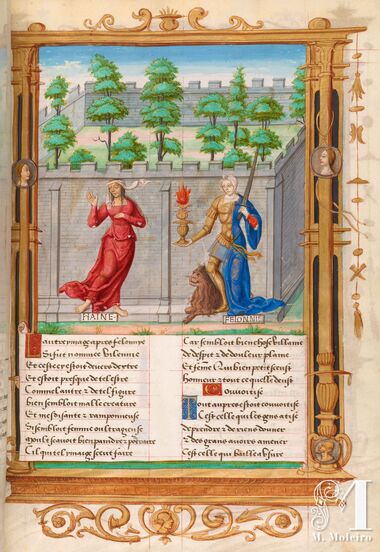 HAINE
FELONNIE
Lautre ymage apres felonnye
Si fut nommee villennie
Et estoit deuers dextre
Et estoit presque de tel estre
Comme lautre & de tel figure
bien sembloit malle creature
Et mesdisante & ramponneuse
Si sembloit femme oultrageuse
moult sauoit bien paindre & pourtraire
Cil qui tel ymaige sceut faire
Car sembloit bien chose villaine
de despit & de douleur plaine
Et femme qui bien petit sceust
honneur & tout ce quelle deust
Couuoitise
Tout aupres estoit couuoitise
Cest celle qui les gens atise
de prendre & de riens donner
& des grans auoirs amener
Cest celle qui baille a usure
M. Moleiro